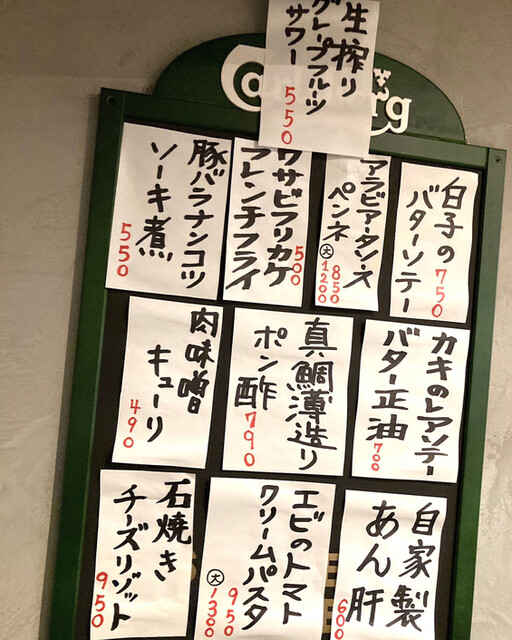 生搾り
グレープフルーツ
サワー
550
白子の
バターソテー
750
アラビアータ・ス
ペンネ
850
大
1200
ワサビフリカケ
フレンチフライ
500
豚バラナンコツ
ソーキ煮
550
カキのレアソテー
バター正油
700
真鯛薄造り
ポン酢
790
肉味噌
キューリ
490
自家製
あん肝
600
エビのトマト
クリームパスタ
950
大
1300
石焼き
チーズリゾット
950